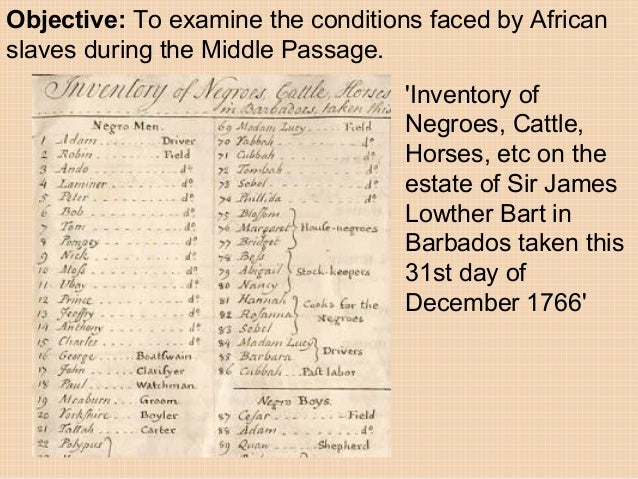 Objective: To examine the conditions faced by African
slaves during the Middle Passage.
'Inventory of
Negroes, Cattle,
Horses, etc on the
estate of Sir James
Lowther Bart in
Barbados taken this
31st day of
December 1766'
Inventory of Negroes, Cattle, Horses
in Barbados, taken this
Negro Men.
1 Adam Driver
2 Robin Field
3 Ando do
4 Laminer do
5 Peter do
6 Bob do
7 Tom do
8 Pompey do
9 Nick do
10 Moss do
11 Ubay do
12 Prince do
13 Jeoffry do
14 Anthony do
15 Charles do
16 George Boatswain
17 John Clarifyer
18 Paul Watchman
19 Meaburn Groom
20 Yorkshire Boyler
21 Tallah Carter
22 Polypus
69 Madam Lucy Field
70 Yabbah do
71 Cubbah do
72 Tombah do
73 Sebel do
74 Phillida do
75 Blossom
76 Margaret House-negroes
77 Bridget
78 Bess
79 Abigail Stock-keepers
80 Nancy
81 Hannah Cooks for the
82 Rosanna Negroes
83 Sebel
84 Madam Lucy Drivers
85 Barbara
86 Cubbah Past labor
Negro Boys.
87 Cesar Field
88 Adam do
89 Quan Shepherd